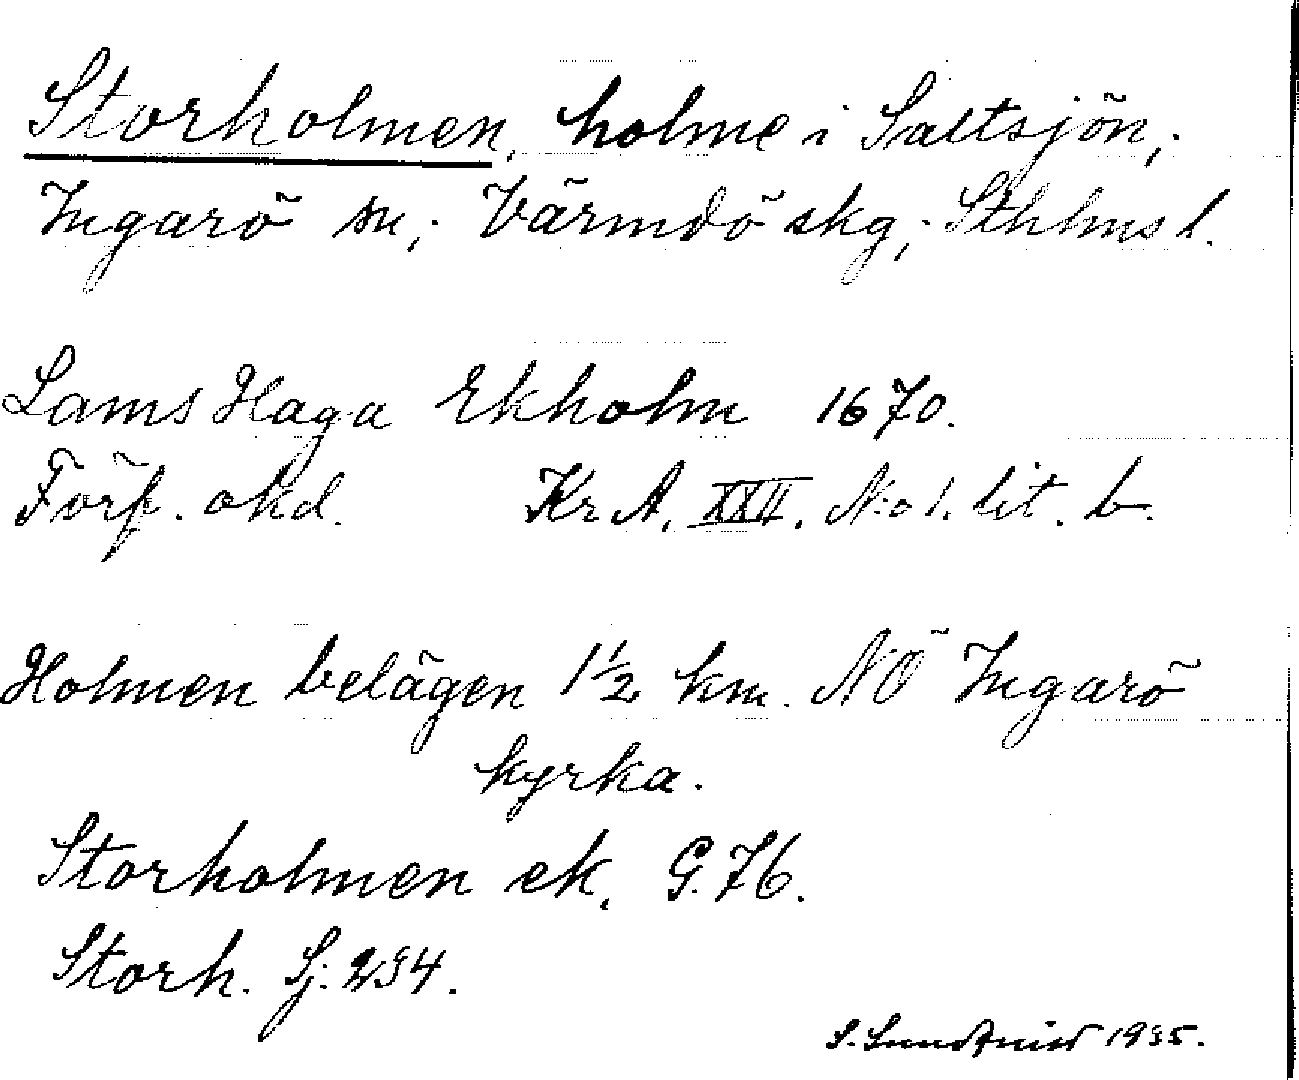 Storholmen, holme i Saltsjön;
Ingarö sn; Värmdö skg; Sthlms l.
Lams Haga Ekholm 1670.
Förf. okd. Kr A. XXII. No 1. lit. b.
Holmen belägen 1½ km. NÖ Ingarö
kyrka.
Storholmen ek. G. 76.
Storh. Sj. 234.
S. Lundqvist 1935.